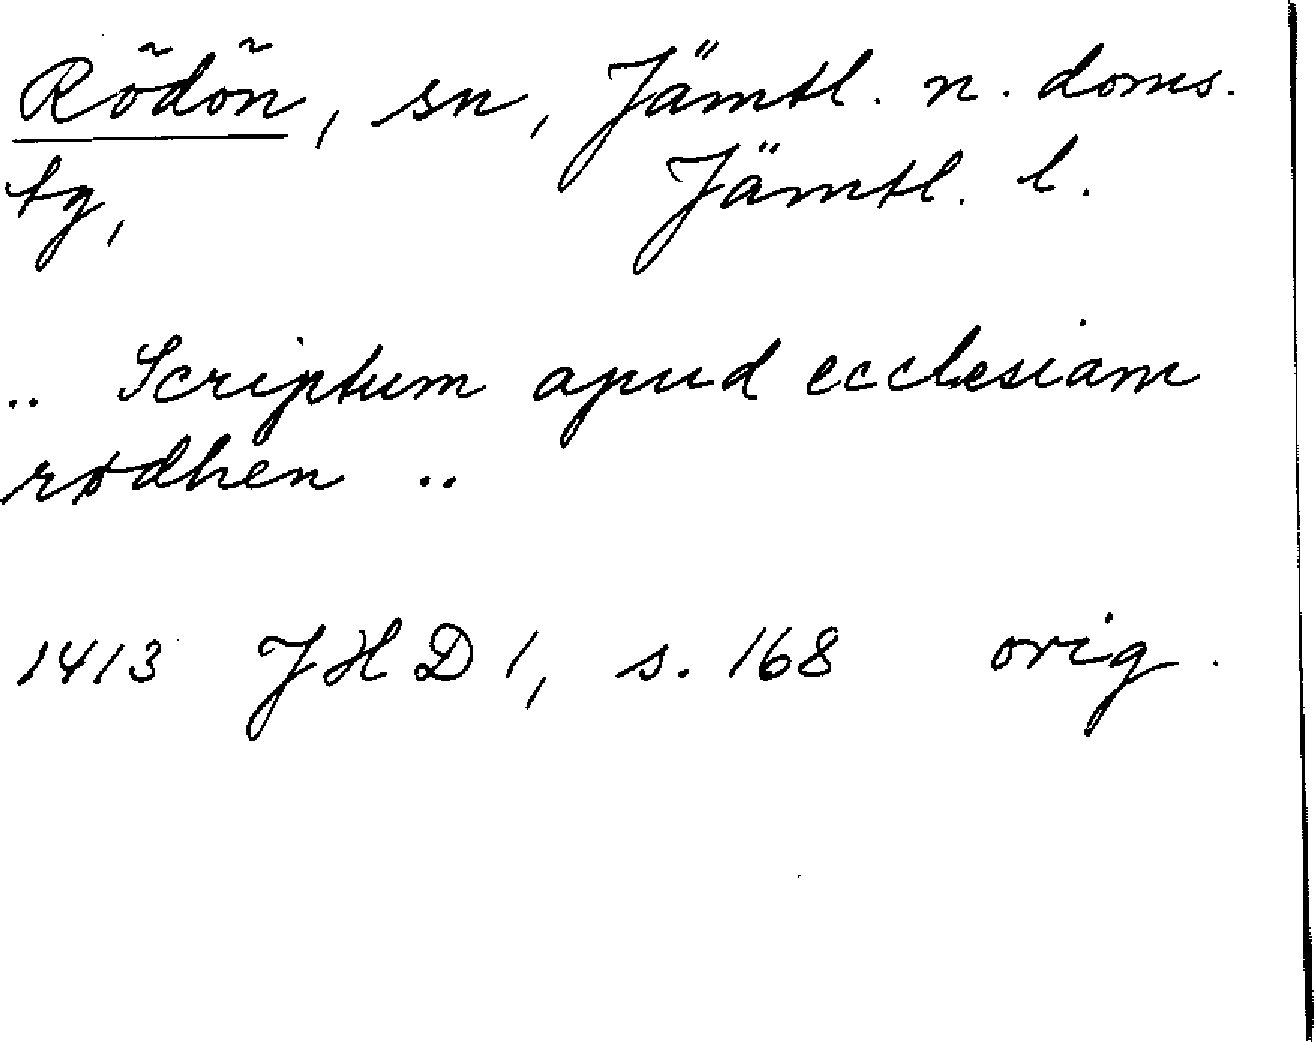 Rödön, sn, Jämtl. n. doms.
tg, Jämtl. l.
.. Scriptum apud ecclesiam
rødhen ..
1413 JHD 1, s. 168 orig.